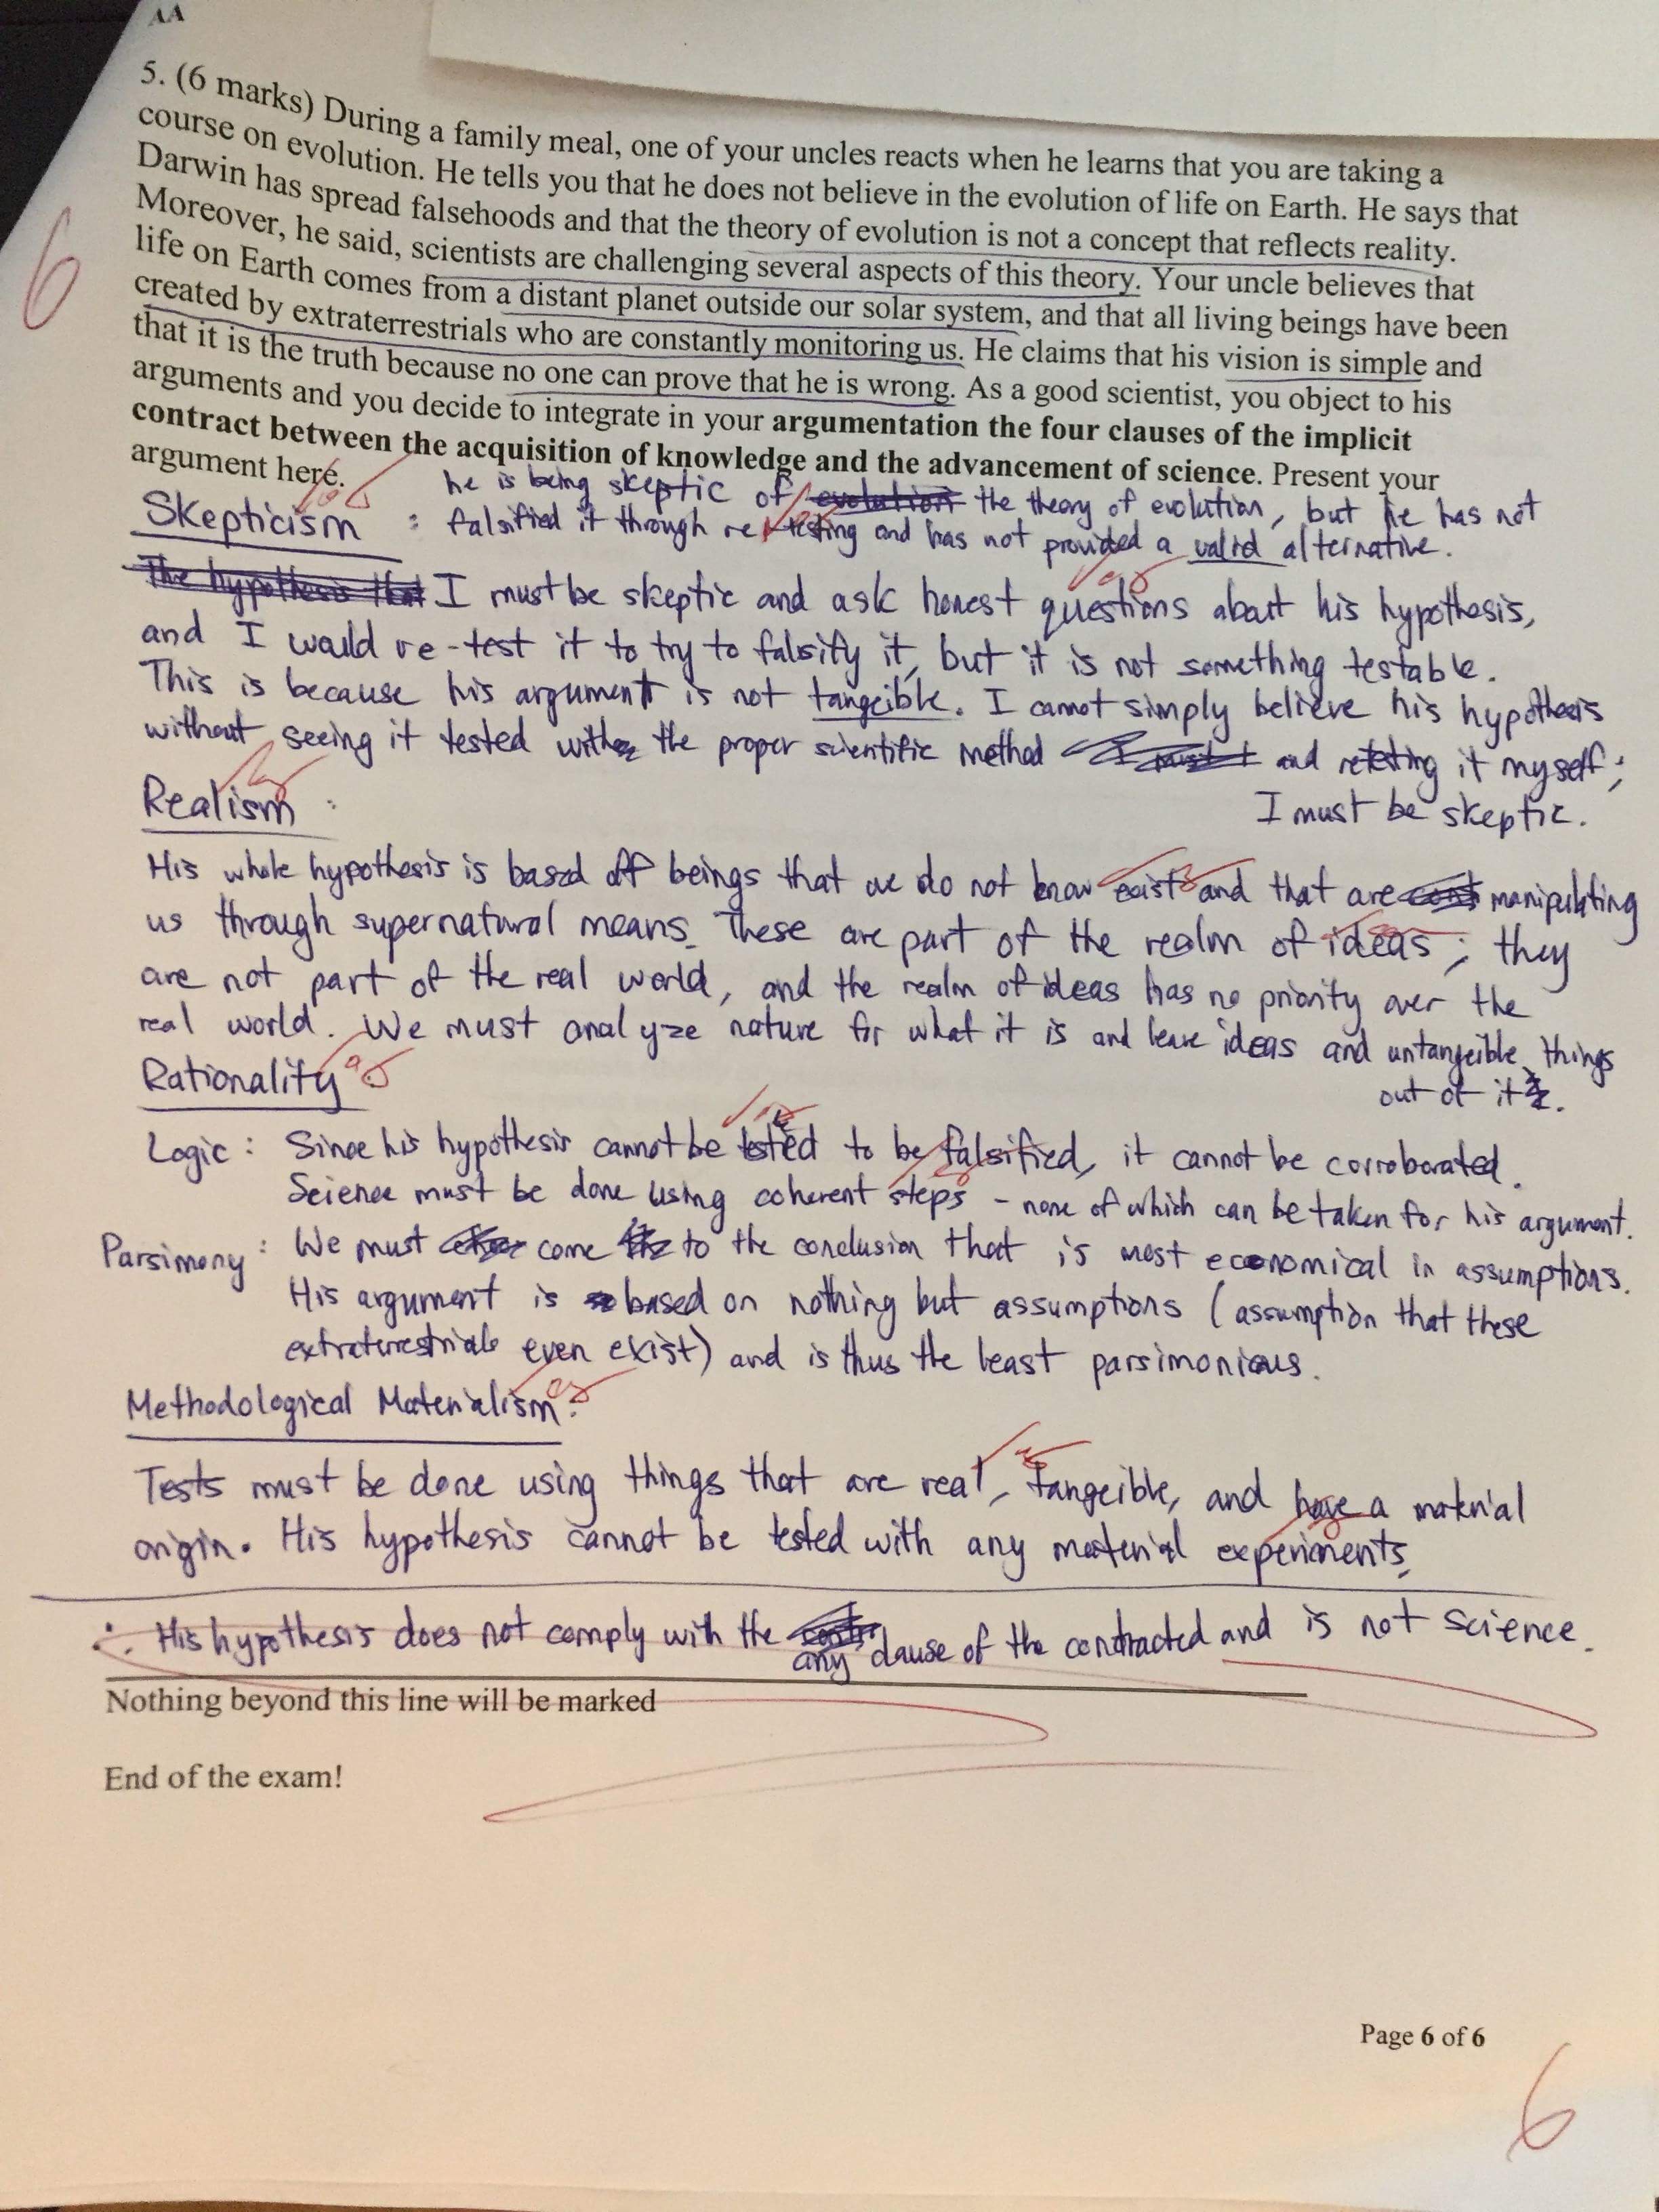 AA
5. (6 marks) During a family meal, one of your uncles reacts when he learns that you are taking a
course on evolution. He tells you that he does not believe in the evolution of life on Earth. He says that
Darwin has spread falsehoods and that the theory of evolution is not a concept that reflects reality.
Moreover, he said, scientists are challenging several aspects of this theory. Your uncle believes that
life on Earth comes from a distant planet outside our solar system, and that all living beings have been
created by extraterrestrials who are constantly monitoring us. He claims that his vision is simple and
that it is the truth because no one can prove that he is wrong. As a good scientist, you object to his
arguments and you decide to integrate in your argumentation the four clauses of the implicit
contract between the acquisition of knowledge and the advancement of science. Present your
argument here.
6
he is being skeptic of evolution the theory of evolution, but he has not
Skepticism : falsified it through re-testing and has not provided a valid alternative.
The hypothesis that I must be skeptic and ask honest questions about his hypothesis,
and I would re-test it to try to falsify it, but it is not something testable.
This is because his argument is not tangeible. I cannot simply believe his hypothesis
without seeing it tested with the proper scientific method and retesting it myself;
I must be skeptic.
Realism :
His whole hypothesis is based off beings that we do not know exist and that are manipulating
us through supernatural means. These are part of the realm of ideas; they
are not part of the real world, and the realm of ideas has no priority over the
real world. We must analyze nature for what it is and leave ideas and untangeible things
out of it.
Rationality
Logic : Since his hypothesis cannot be tested to be falsified, it cannot be corroborated.
Science must be done using coherent steps - none of which can be taken for his argument.
Parsimony : We must come to the conclusion that is most economical in assumptions.
His argument is based on nothing but assumptions (assumption that these
extraterrestrials even exist) and is thus the least parsimonious.
Methodological Materialism :
Tests must be done using things that are real, tangeible, and have a material
origin. His hypothesis cannot be tested with any material experiments.
∴ His hypothesis does not comply with the any clause of the contracted and is not science.
Nothing beyond this line will be marked
End of the exam!
Page 6 of 6
6